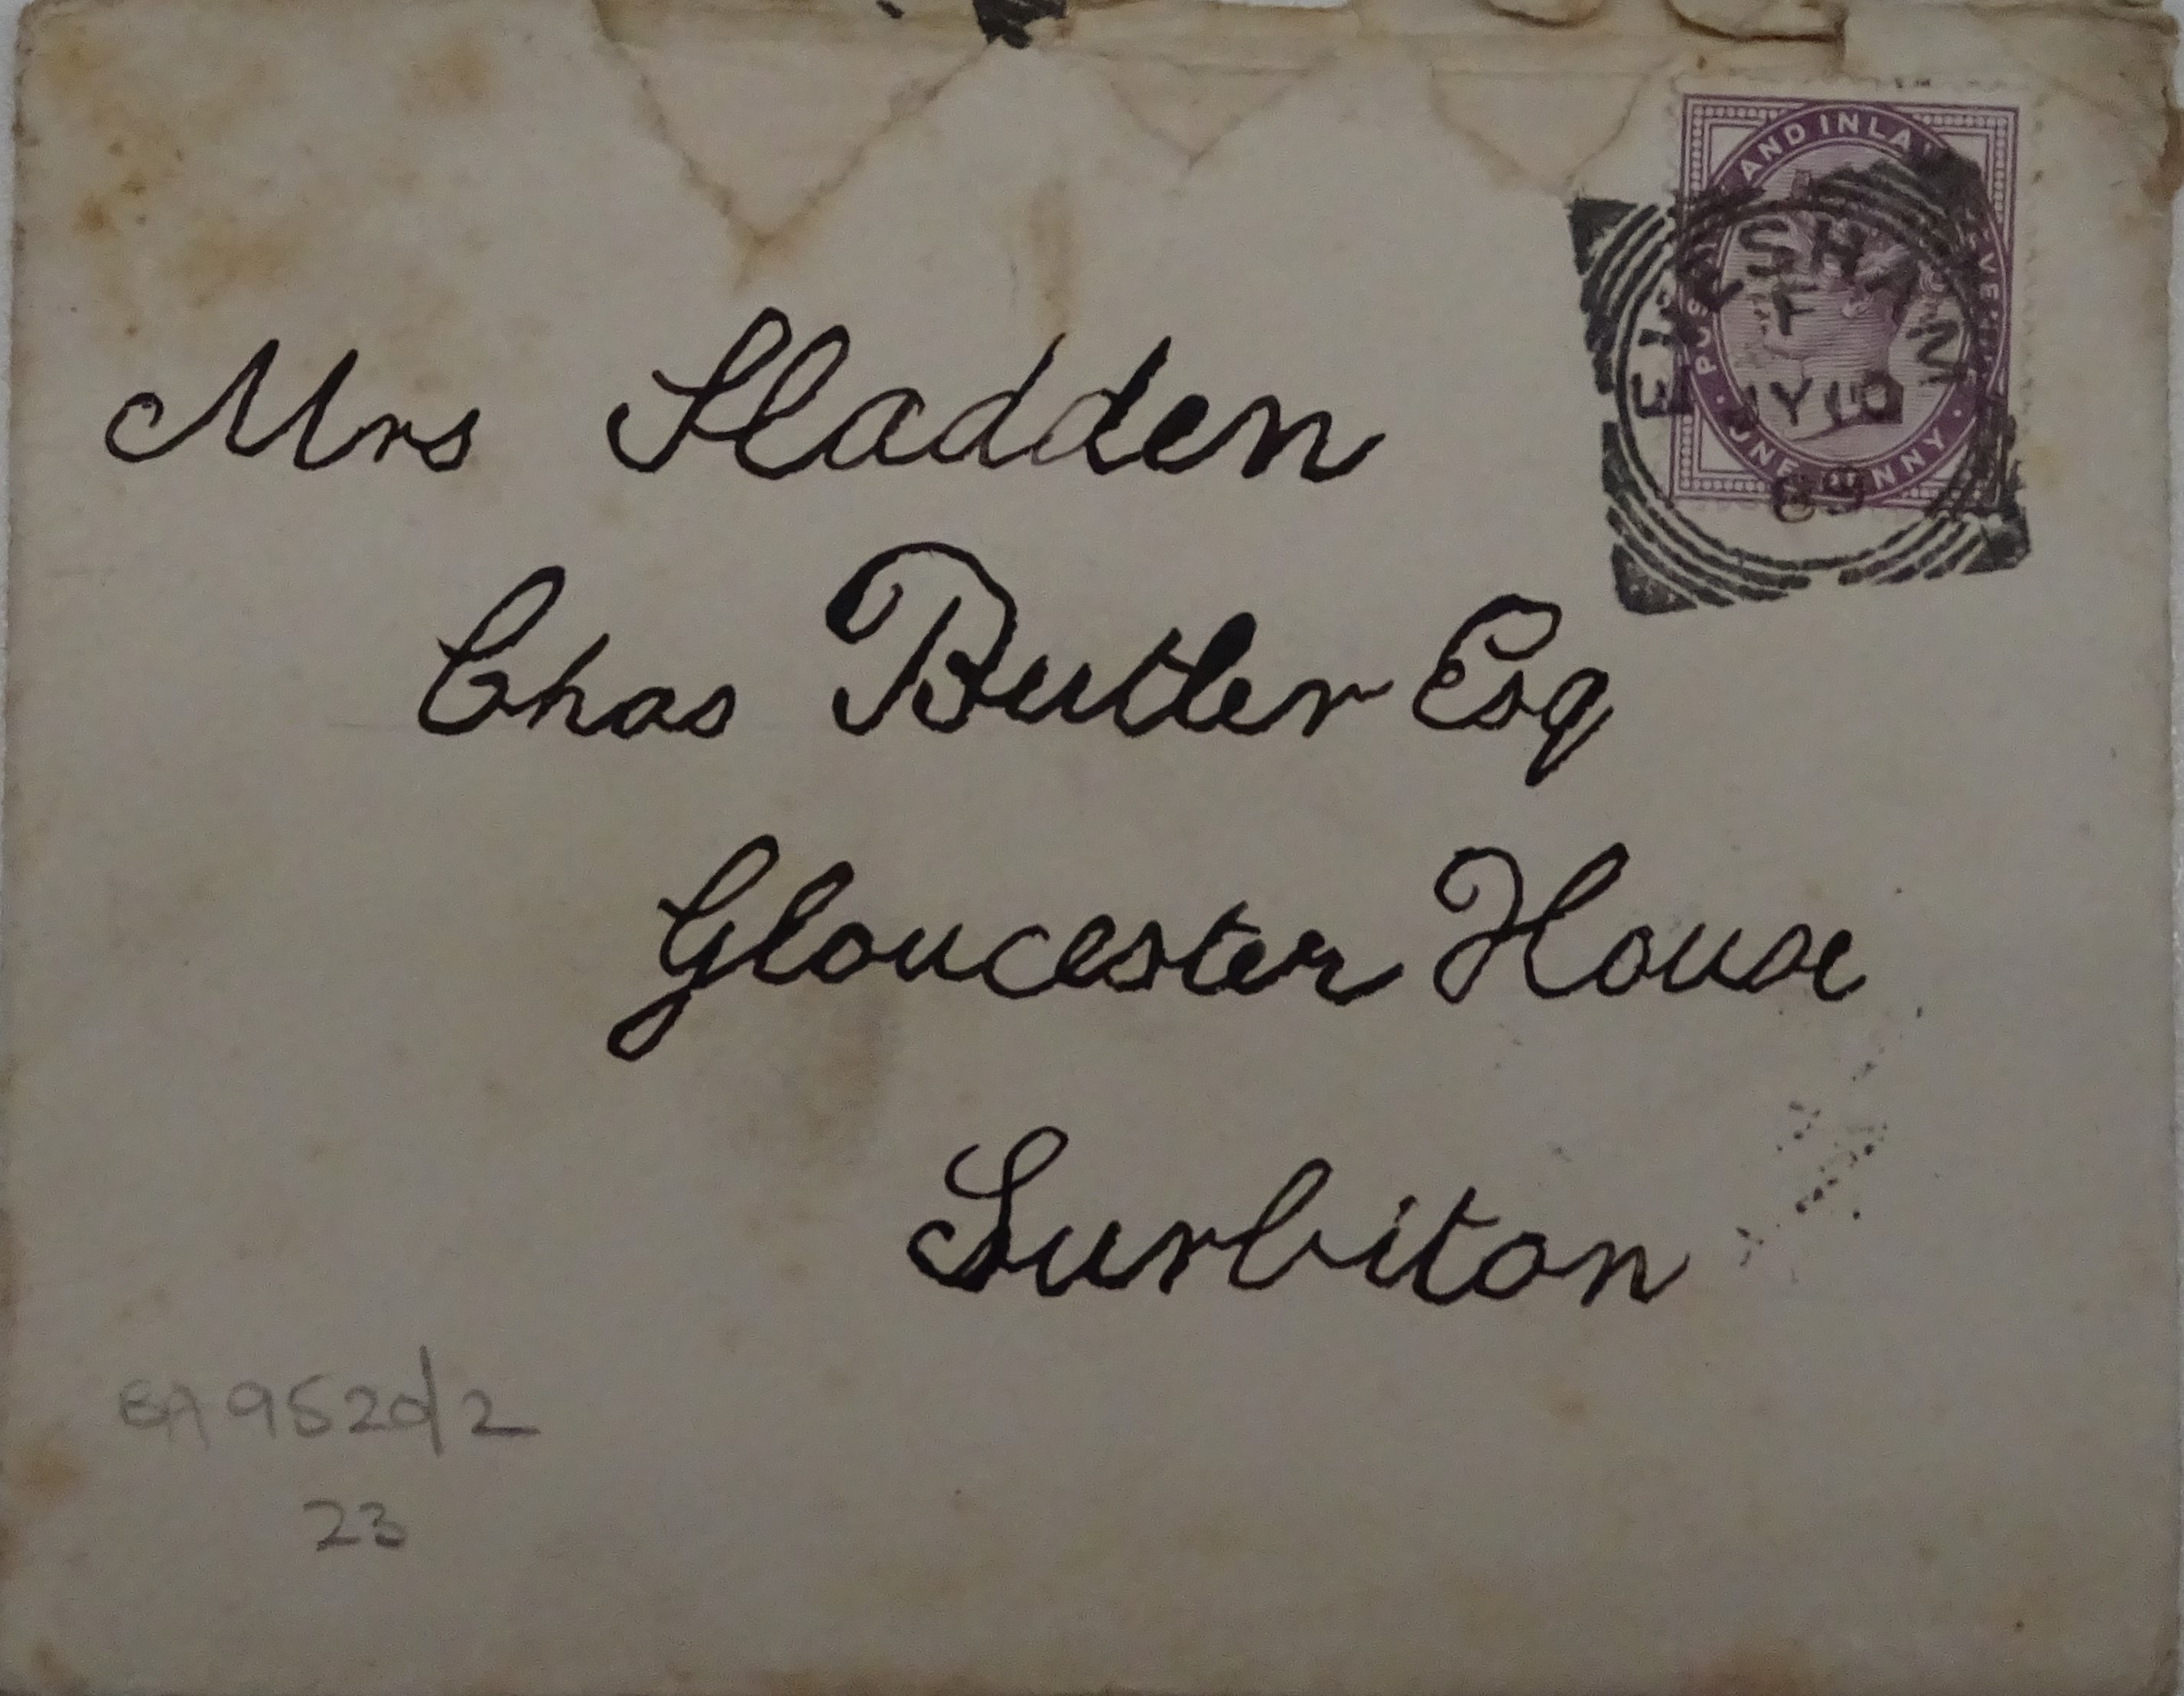 Mrs Sladden
Chas Butler Esq
Gloucester House
Surbiton
POSTAGE AND INLAND REVENUE
ONE PENNY
EVESHAM
F
JY 10
89
EA 9520/2
23